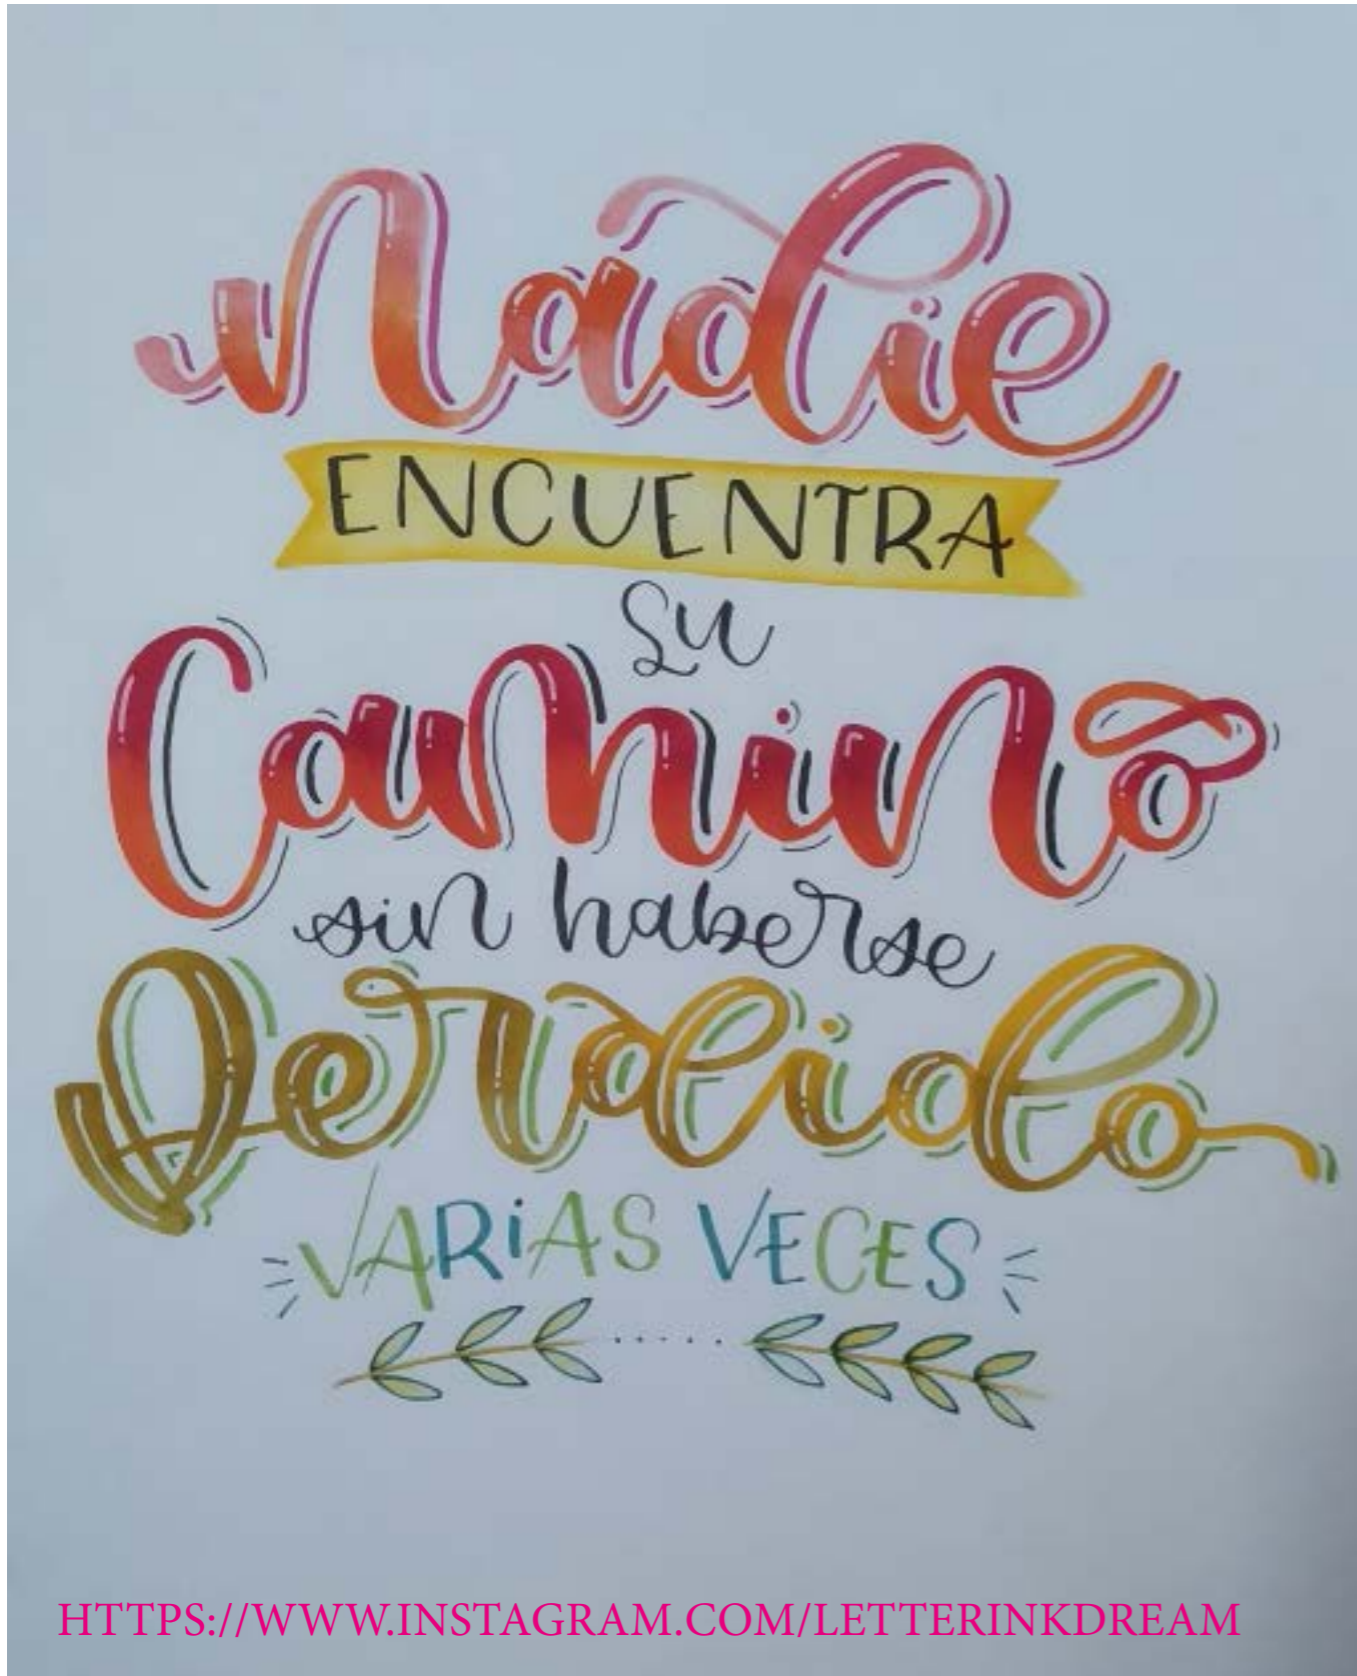 Nadie
ENCUENTRA
su
Camino
sin haberse
Perdido
VARiAS VECES
HTTPS://WWW.INSTAGRAM.COM/LETTERINKDREAM